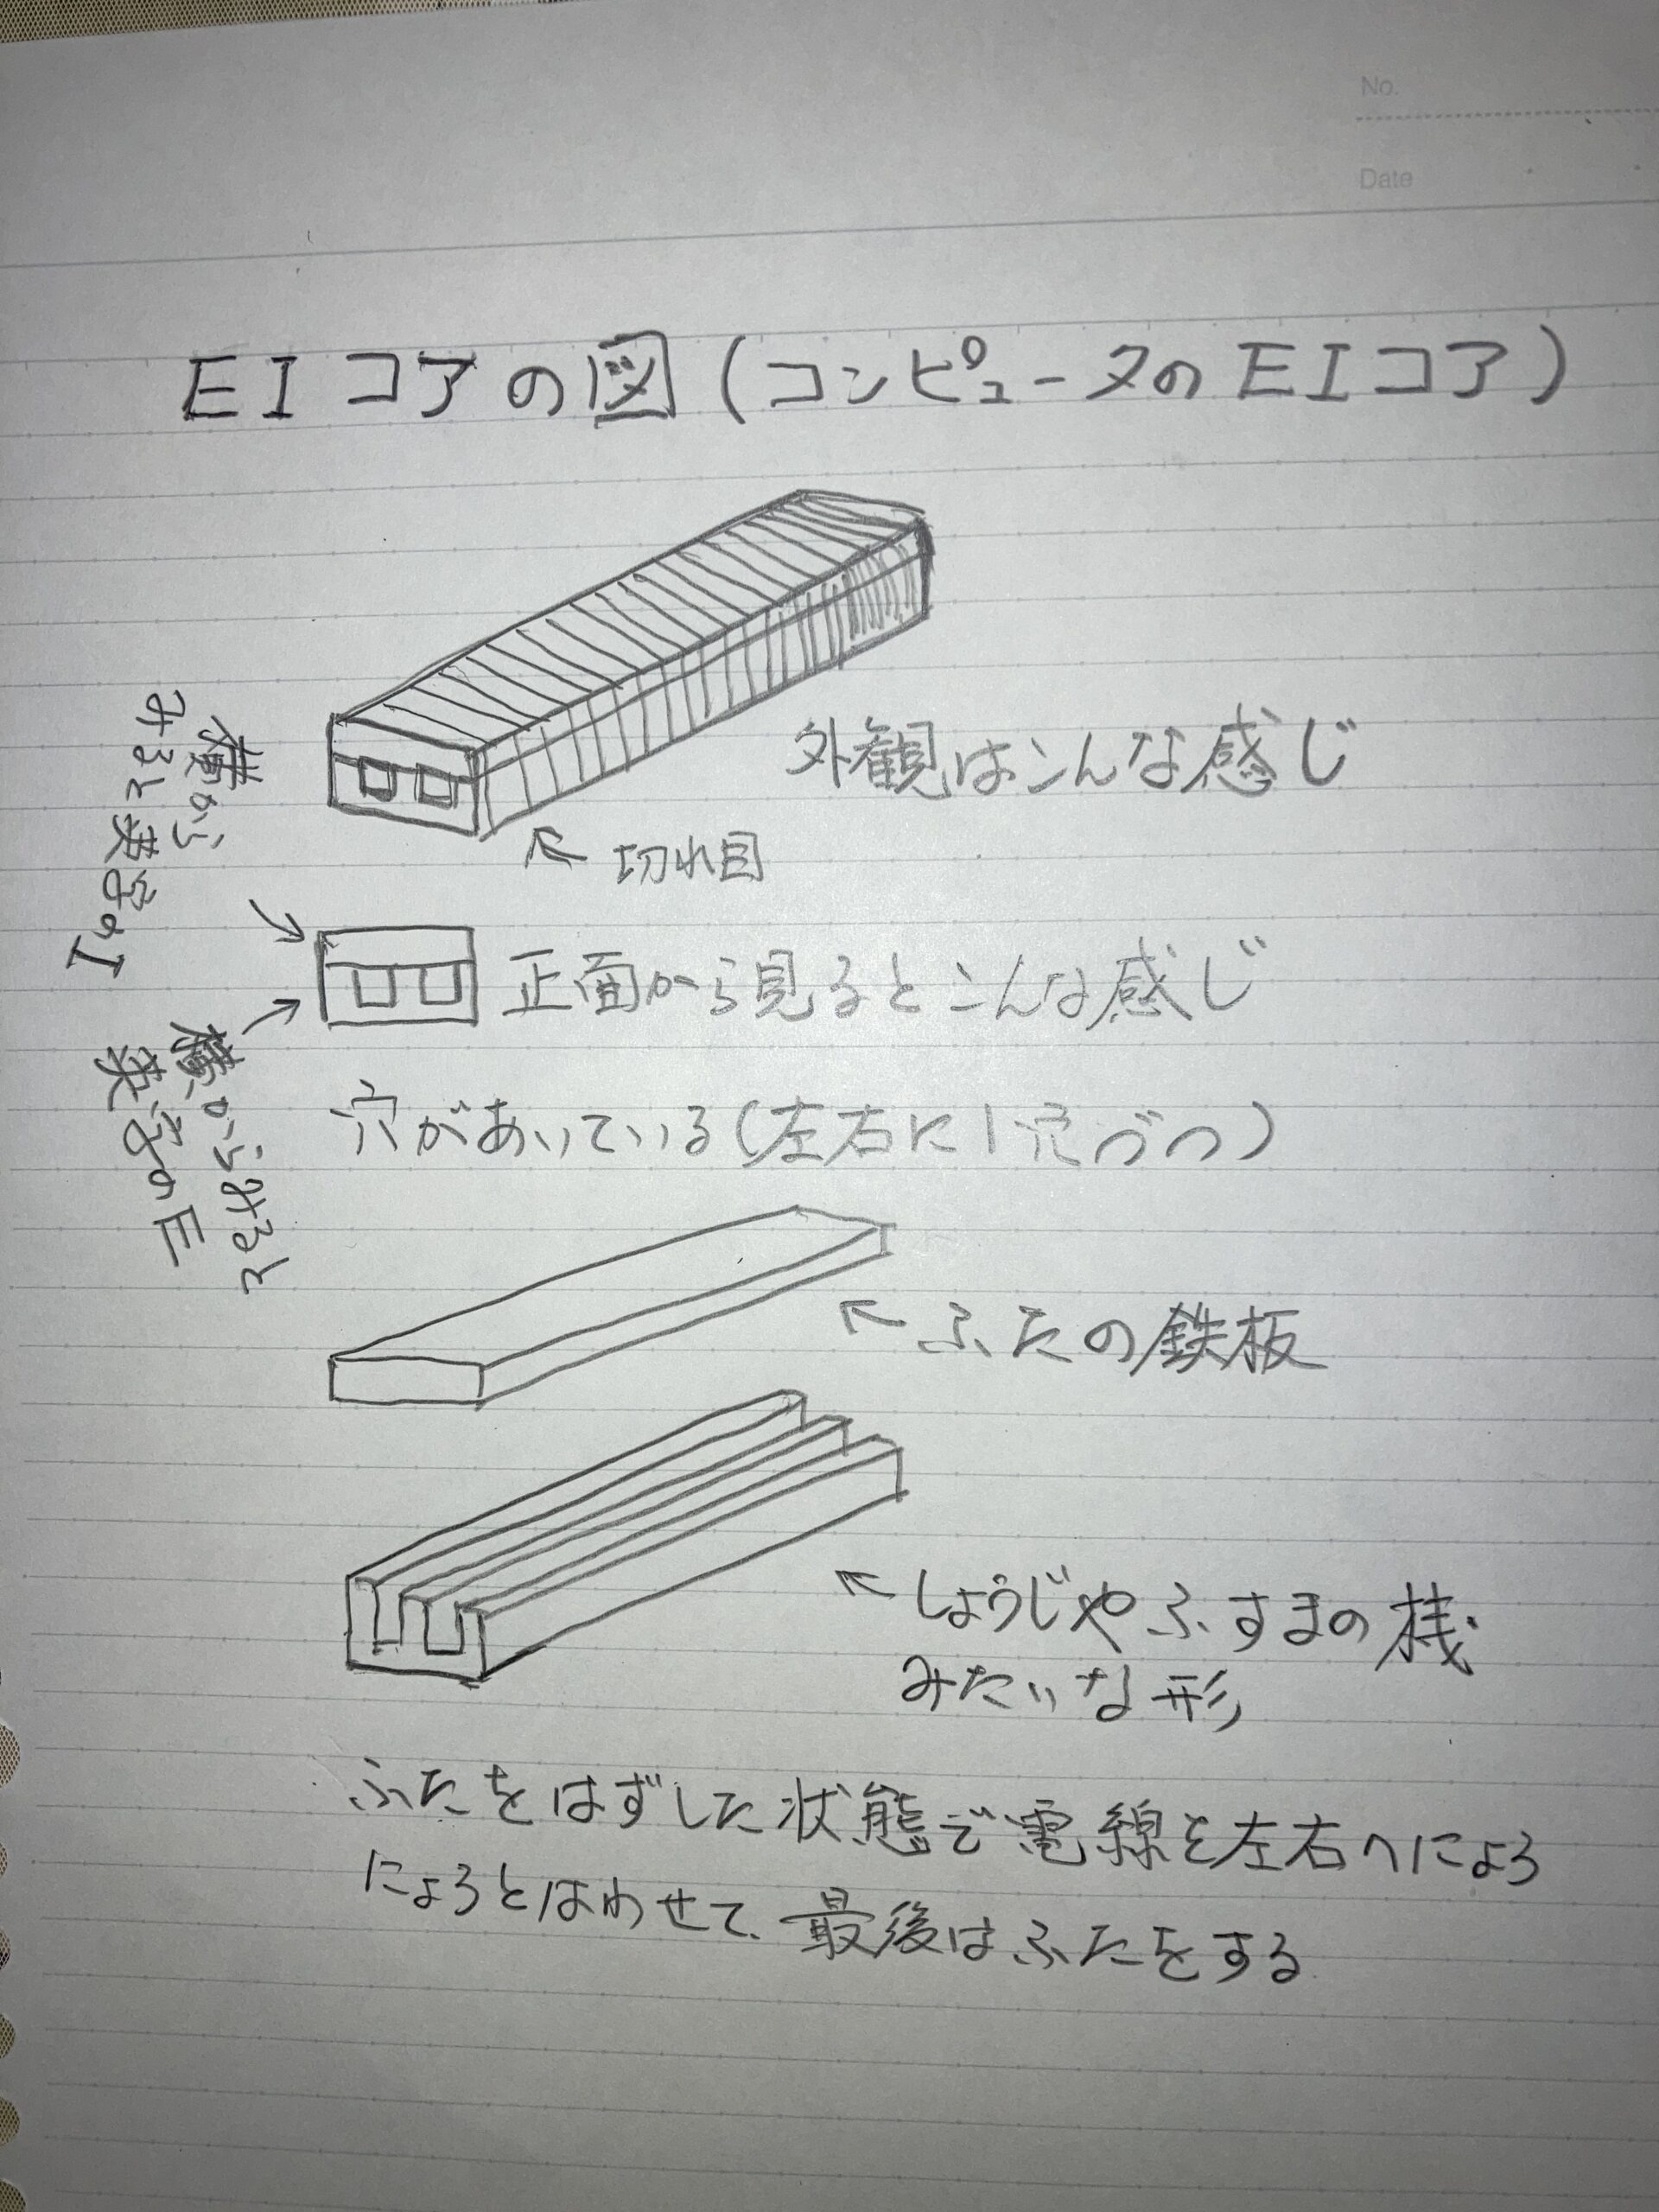 No.
Date
EIコアの図(コンピュータのEIコア)
外観はこんな感じ
切れ目
横から
みると英字のI
正面から見るとこんな感じ
横からみると
英字のE
穴があいている(左右に1穴づつ)
ふたの鉄板
しょうじやふすまの桟
みたいな形
ふたをはずした状態で電線を左右へにょろ
にょろとはわせて、最後はふたをする